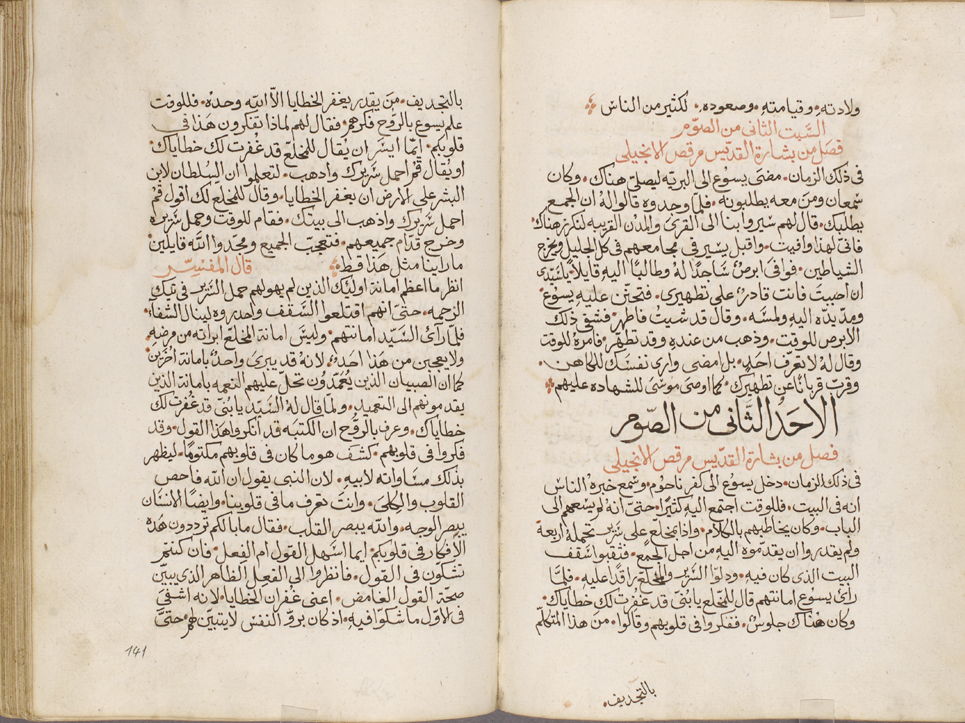 ولادته وقيامته وصعوده لكثير من الناس
السبت الثاني من الصوم
فصل من بشارة القديس مرقص الانجيلي
في ذلك الزمان مضى يسوع الى البريه ليصلي هناك وكان
سمعان ومن معه يطلبونه فلما وجدوه قالوا له ان الجميع
يطلبك قال لهم سيروا بنا الى القرى والمدن القريبه لنكرز هناك
فاني لهذا وافيت واقبل يسير في مجامعهم في كل الجليل ويخرج
الشياطين فوافى ابرص ساجدا له وطالبا اليه قايلا يا سيدي
ان احببت فانت قادر على تطهيري فتحنن عليه يسوع
ومد يده اليه ولمسه وقال قد شيت فاطهر فشفي ذلك
الابرص للوقت وذهب من عنده وقد تطهر فامره للوقت
وقال له لا تعرف احد بل امضي واري نفسك للكاهن
وقرب قربانا عن تطهيرك كما اوصى موسى للشهاده عليهم
الاحد الثاني من الصوم
فصل من بشارة القديس مرقص الانجيلي
في ذلك الزمان دخل يسوع الى كفر ناحوم وسمع خبره الناس
انه في البيت فللوقت اجتمع اليه كثير حتى انه لم يسعهم الى
الباب وكان يخاطبهم بالكلام واذا مخلع على سرير تحمله اربعة
ولم يقدروا ان يقدموه اليه من اجل الجمع فنقبوا سقف
البيت الذي كان فيه ودلوا السرير والمخلع راقدا عليه فلما
راى يسوع امانتهم قال للمخلع يا بني قد غفرت لك خطاياك
وكان هناك جلوس ففكروا في قلوبهم وقالوا من هذا المتكلم
بالتجديف
بالتجديف من يقدر يغفر الخطايا الا الله وحده فللوقت
علم يسوع بالروح فكرهم فقال لهم لماذا تفكرون هذا في
قلوبكم ايما ايسر ان يقال للمخلع قد غفرت لك خطاياك
او يقال قم احمل سريرك واذهب لتعلموا ان السلطان لابن
البشر على الارض ان يغفر الخطايا وقال للمخلع لك اقول قم
احمل سريرك واذهب الى بيتك فقام للوقت وحمل سريره
وخرج قدام جميعهم فتعجب الجميع ومجدوا الله قايلين
ما راينا مثل هذا قط قال المفسر
انظر ما اعظم امانة اولئك الذين لم يهولهم حمل السرير في تلك
الزحمه حتى انهم اقتلعوا السقف واحدروه لينال الشفاء
فلما راى السيد امانتهم وليس امانة المخلع ابراته من مرضه
ولا يعجبن من هذا احد لانه قد يبرى واحد بامانة اخرين
كما ان الصبيان الذين يعمدون تحل عليهم النعمه بامانة الذين
يقدمونهم الى التعميد ولما قال له السيد يا بني قد غفرت لك
خطاياك وعرف بالروح ان الكتبه قد انكروا هذا القول وقد
فكروا في قلوبهم كشف هو ما كان في قلوبهم مكتوما ليظهر
بذلك مساواته لابيه لان النبي يقول ان الله فاحص
القلوب والكلى وانت تعرف ما في قلوبنا وايضا الانسان
يبصر الوجه والله يبصر القلب فقال ما بالكم ترددون هذه
الافكار في قلوبكم ايما اسهل القول ام الفعل فان كنتم
تشكون في القول فانظروا الى الفعل الظاهر الذي يبين
صحة القول الغامض اعني غفران الخطايا لانه اشفى
في الاول ما شكوا فيه اذ كان برو النفس لا يتبين لهم حتى
141